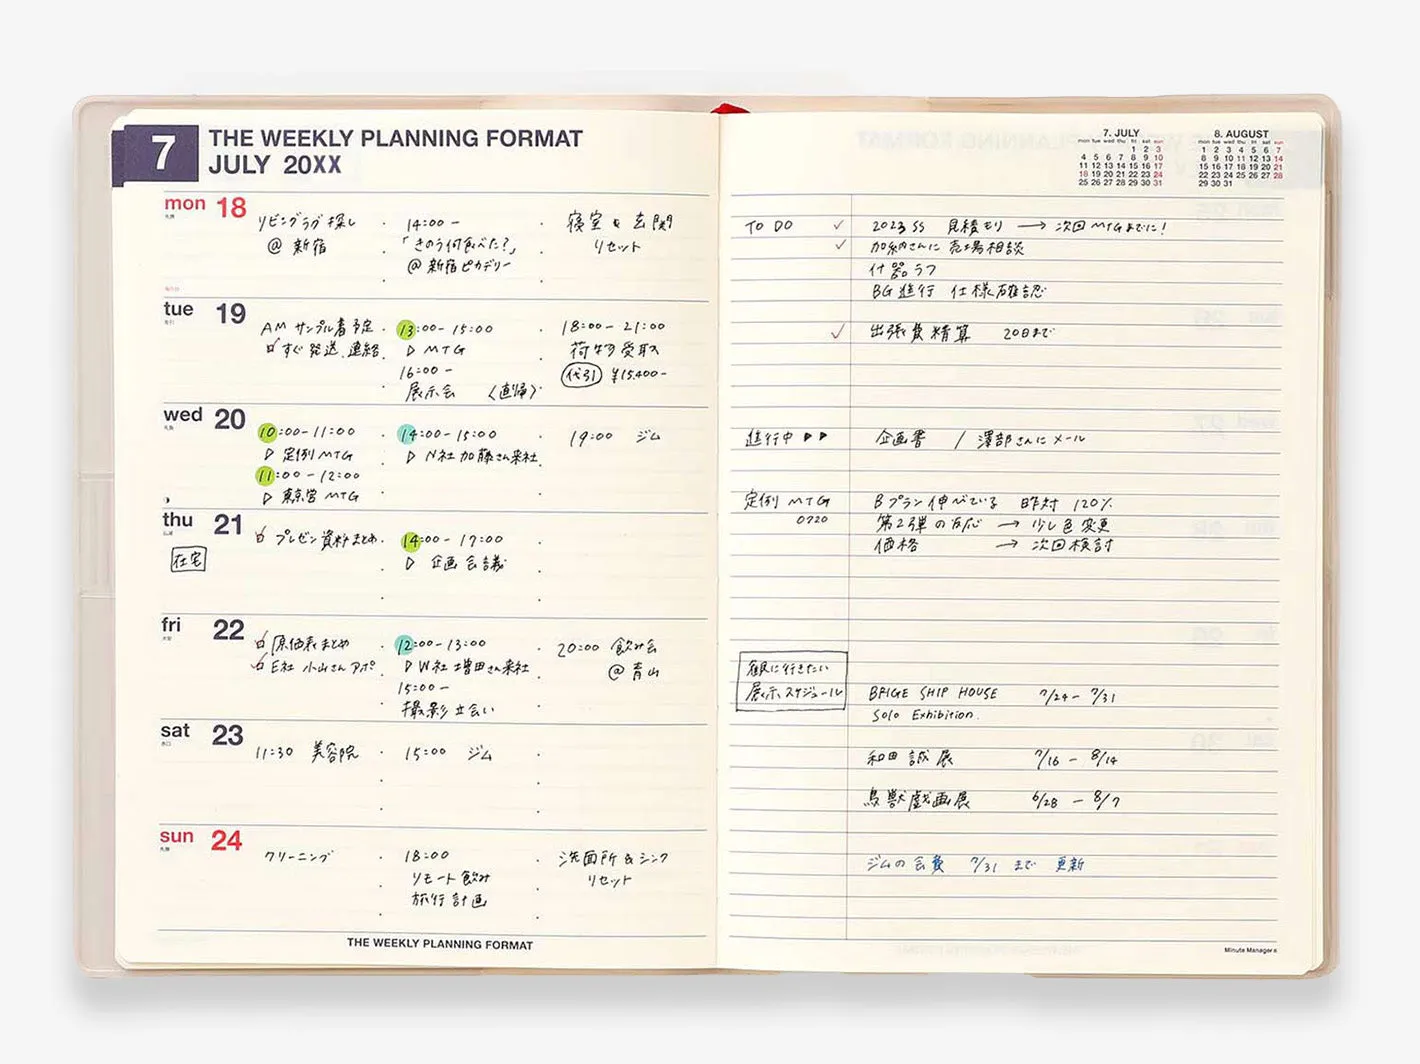 7
THE WEEKLY PLANNING FORMAT
JULY 20XX
mon 18
リビングラグ探し
@ 新宿
14:00 −
「きのう何食べた?」
@ 新宿ピカデリー
寝室 & 玄関
リセット
tue 19
AM サンプル着予定
すぐ発送、連絡
13:00 - 15:00
▷ MTG
16:00 −
展示会 〈直帰〉
18:00 - 21:00
荷物受取
代引 ¥15,400-
wed 20
10:00 - 11:00
▷ 定例MTG
11:00 - 12:00
▷ 東京営 MTG
14:00 - 15:00
▷ N社 加藤さん来社
19:00 ジム
thu 21
在宅
プレゼン資料まとめ
14:00 - 17:00
▷ 企画会議
fri 22
原価表まとめ
E社 小山さんアポ
12:00 - 13:00
▷ W社 増田さん来社
15:00 −
撮影立会い
20:00 飲み会
@ 青山
sat 23
11:30 美容院
15:00 ジム
sun 24
クリーニング
18:00
リモート飲み
旅行計画
洗面所 & シンク
リセット
THE WEEKLY PLANNING FORMAT
7. JULY
mon tue wed thu fri sat sun
1 2 3
4 5 6 7 8 9 10
11 12 13 14 15 16 17
18 19 20 21 22 23 24
25 26 27 28 29 30 31
8. AUGUST
mon tue wed thu fri sat sun
1 2 3 4 5 6 7
8 9 10 11 12 13 14
15 16 17 18 19 20 21
22 23 24 25 26 27 28
29 30 31
TO DO ✓ 2023 SS 見積もり → 次回MTGまでに!
✓ 加納さんに売場相談
什器ラフ
BG進行 仕様確認
✓ 出張費精算 20日まで
進行中 ▶▶ 企画書 / 澤部さんにメール
定例 MTG Bプラン伸べている 昨対 120%
0720 第2弾の反応 → 少し色変更
価格 → 次回検討
観に行きたい
展示スケジュール
BRIGE SHIP HOUSE 7/24 - 7/31
Solo Exhibition.
和田誠展 7/16 - 8/14
鳥獣戯画展 6/28 - 8/7
ジムの会費 7/31 まで 更新
Minute Manager®